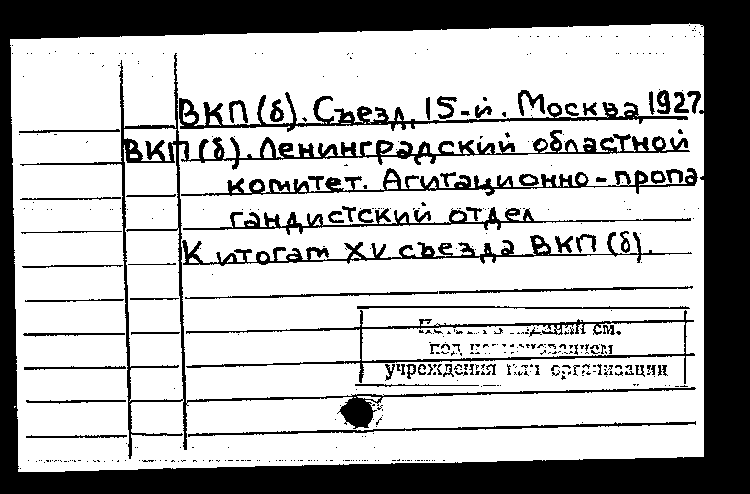 ВКП(б). Съезд, 15-й. Москва, 1927.
ВКП(б). Ленинградский областной
комитет. Агитационно-пропа-
гандистский отдел
К итогам XV съезда ВКП(б).
изданий см.
под наименованием
учреждения или организации